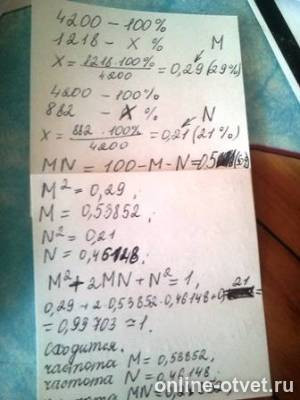 4200 – 100%
1218 – X % M
X = 1218·100% / 4200 = 0,29 (29%)
4200 – 100%
882 – X % N
X = 882·100% / 4200 = 0,21 (21%)
MN = 100 – M – N = 0,5
M² = 0,29
M = 0,53852;
N² = 0,21
N = 0,46148;
M² + 2MN + N² = 1,
0,29 + 2·0,53852·0,46148 + 0,21 =
= 0,99703 ≈ 1.
Сходится.
частота M = 0,53852,
частота N = 0,46148,
частота MN =
online-otvet.ru